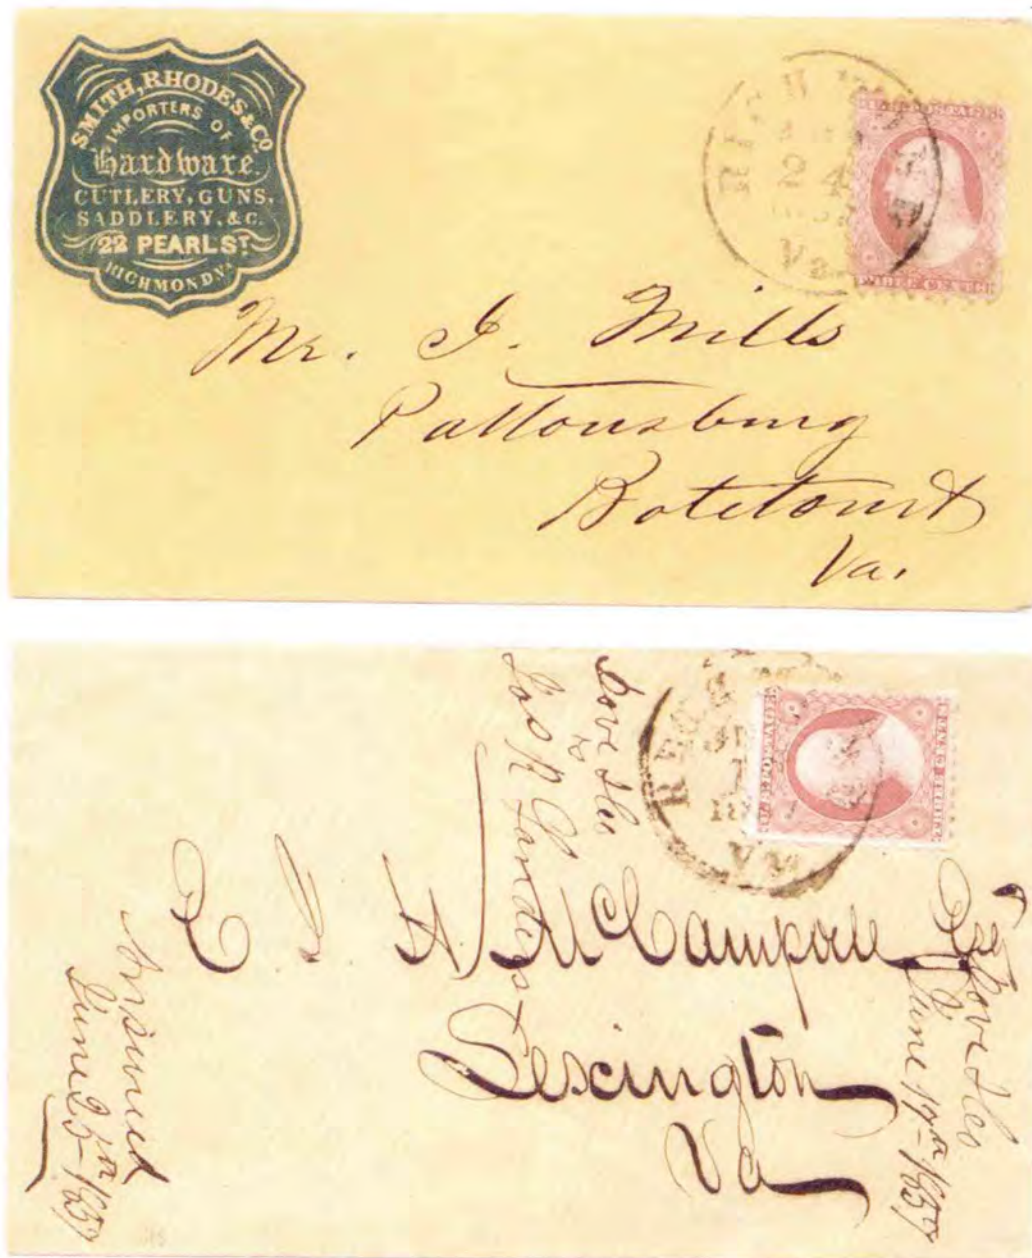 SMITH, RHODES & CO
IMPORTERS OF
Hardware.
CUTLERY, GUNS,
SADDLERY, &C.
22 PEARL ST
RICHMOND, VA
24
Va.
U.S. POSTAGE
THREE CENTS
Mr. I. Mills
Pattonsburg
Botetourt
Va.
Dove & Co
to
Jos R
VA
U.S. POSTAGE
THREE CENTS
McCampbell
Lexington
Va
Dove & Co
June 17th 1857
Answered
June 25th 1857